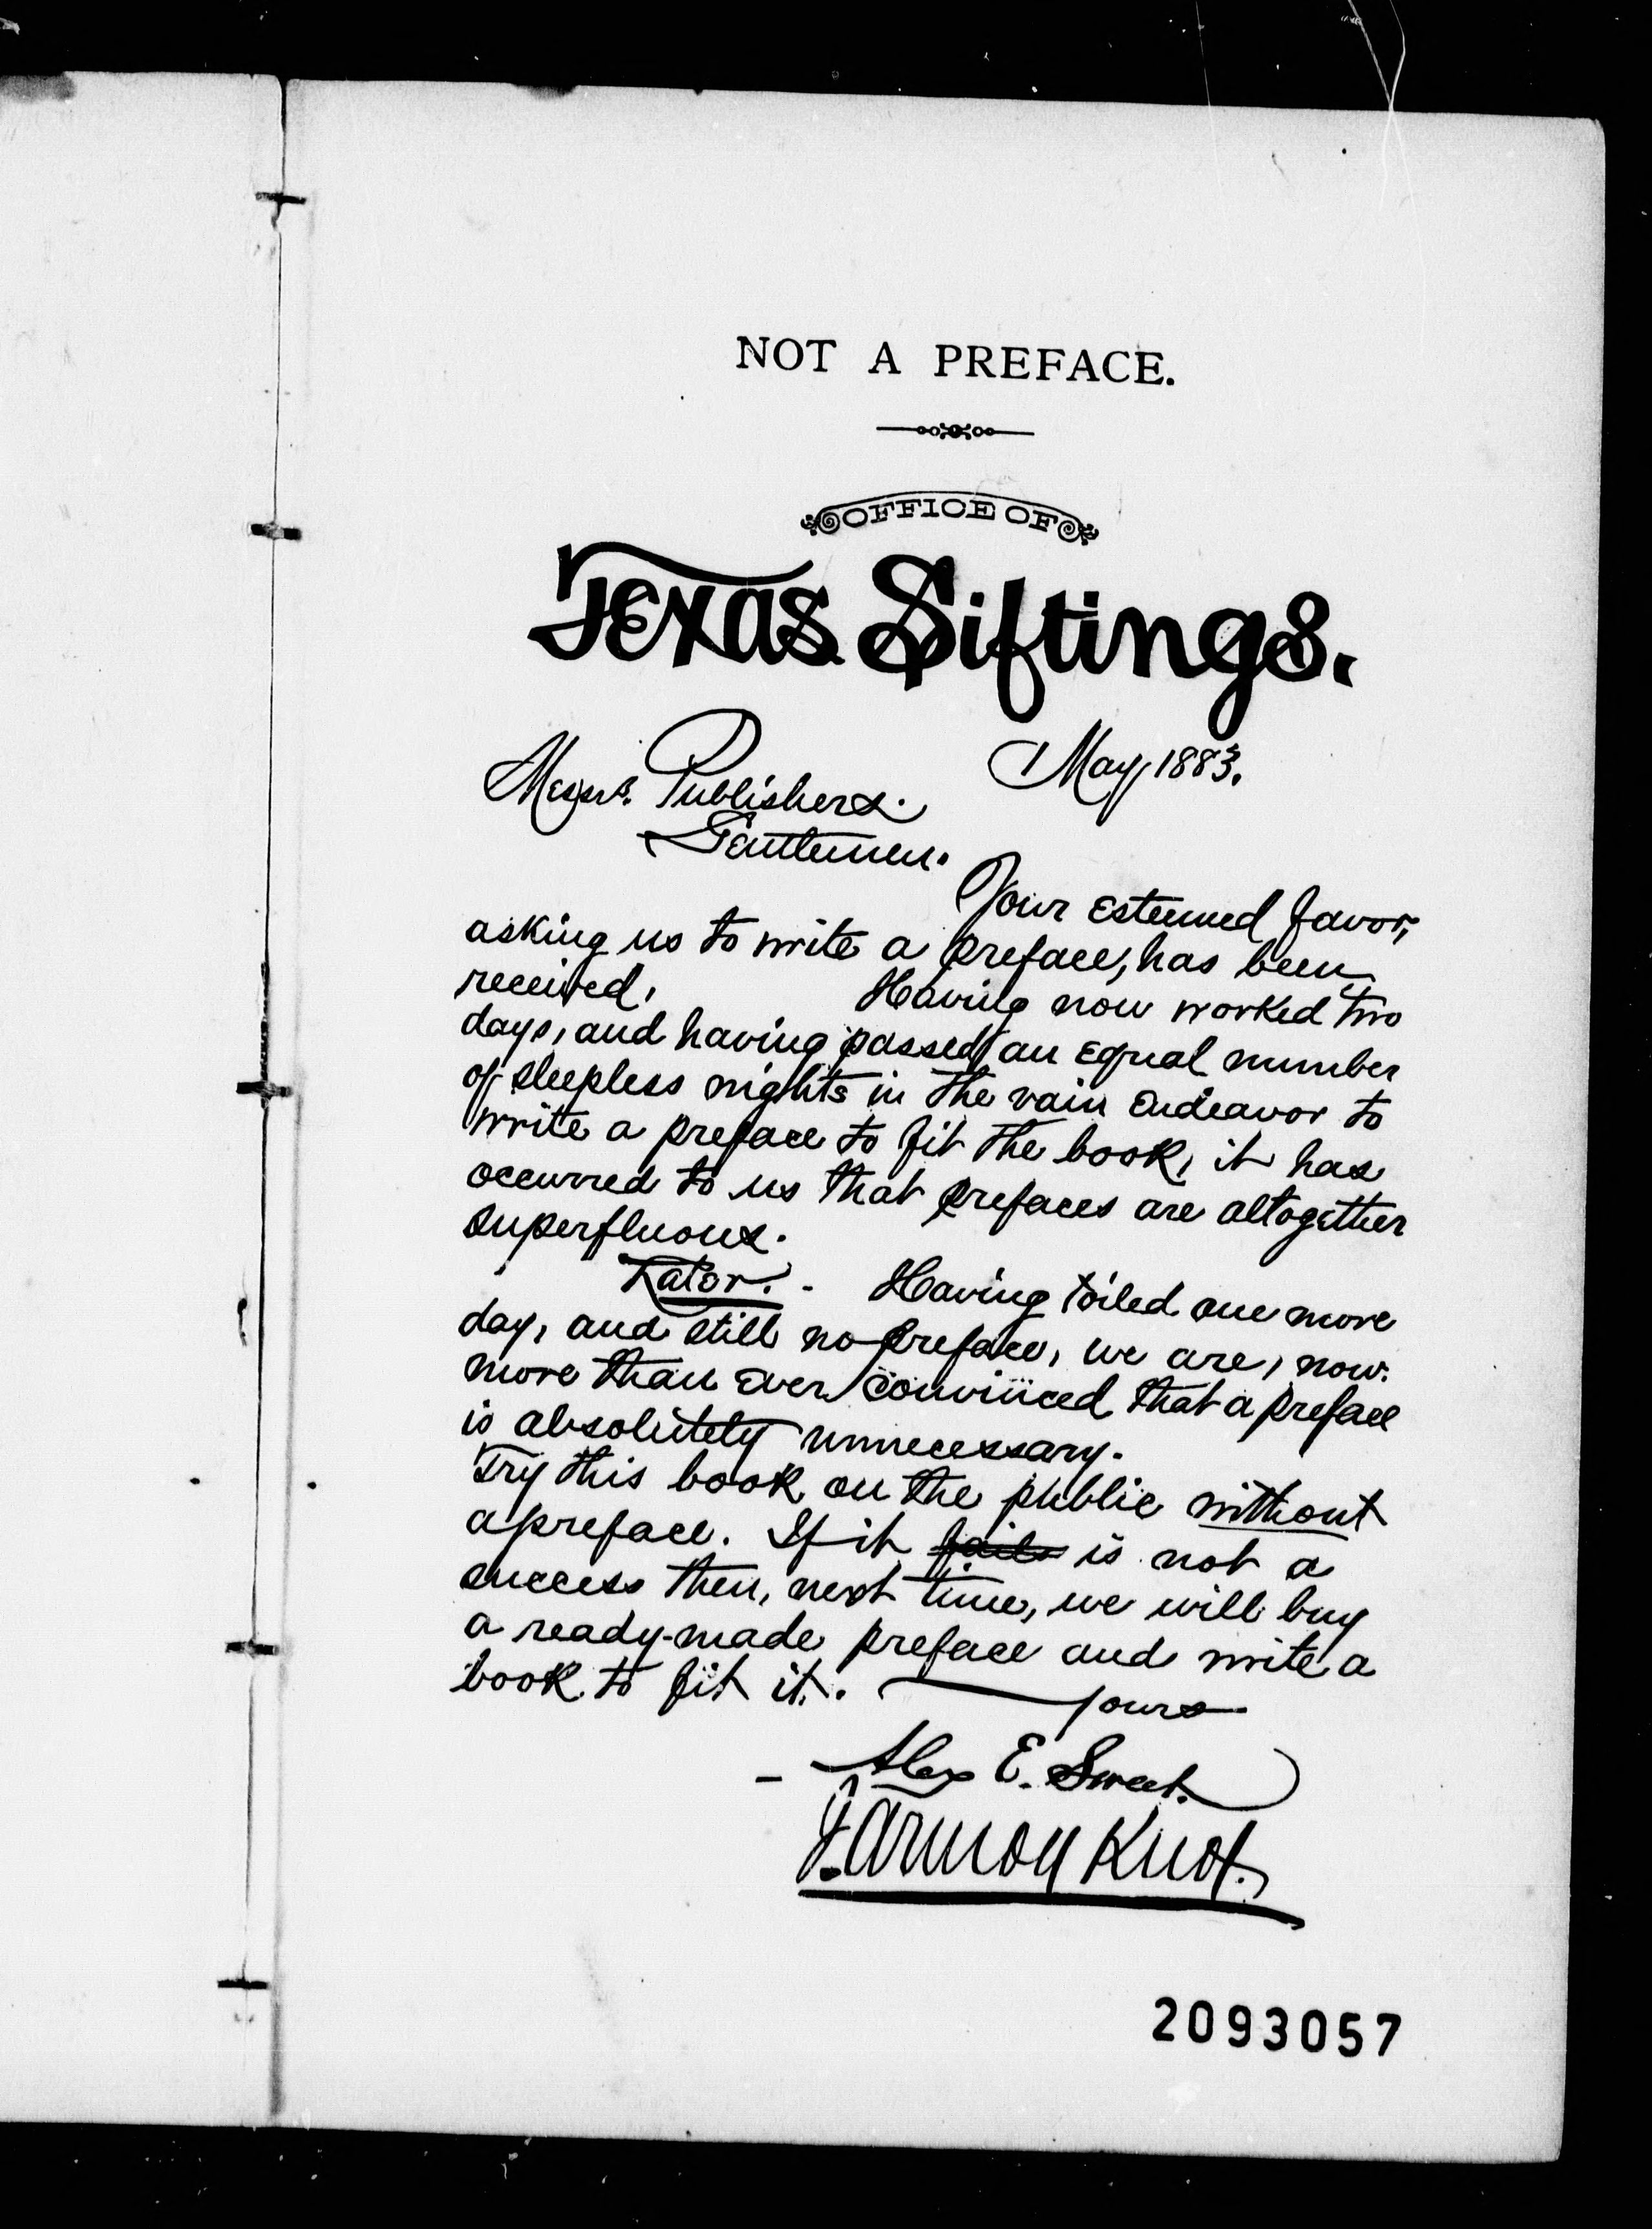 NOT A PREFACE.
OFFICE OF
Texas Siftings.
May, 1883.
Messrs. Publishers.
Gentlemen.
Your esteemed favor,
asking us to write a preface, has been
received. Having now worked two
days, and having passed an equal number
of sleepless nights in the vain endeavor to
write a preface to fit the book, it has
occurred to us that prefaces are altogether
superfluous.
Later. - Having toiled one more
day, and still no preface, we are, now.
more than ever convinced that a preface
is absolutely unnecessary.
Try this book on the public without
a preface. If it fails is not a
success then, next time, we will buy
a ready-made preface and write a
book to fit it. Yours
- Alex E. Sweet.
J. Armoy Knox.
2093057